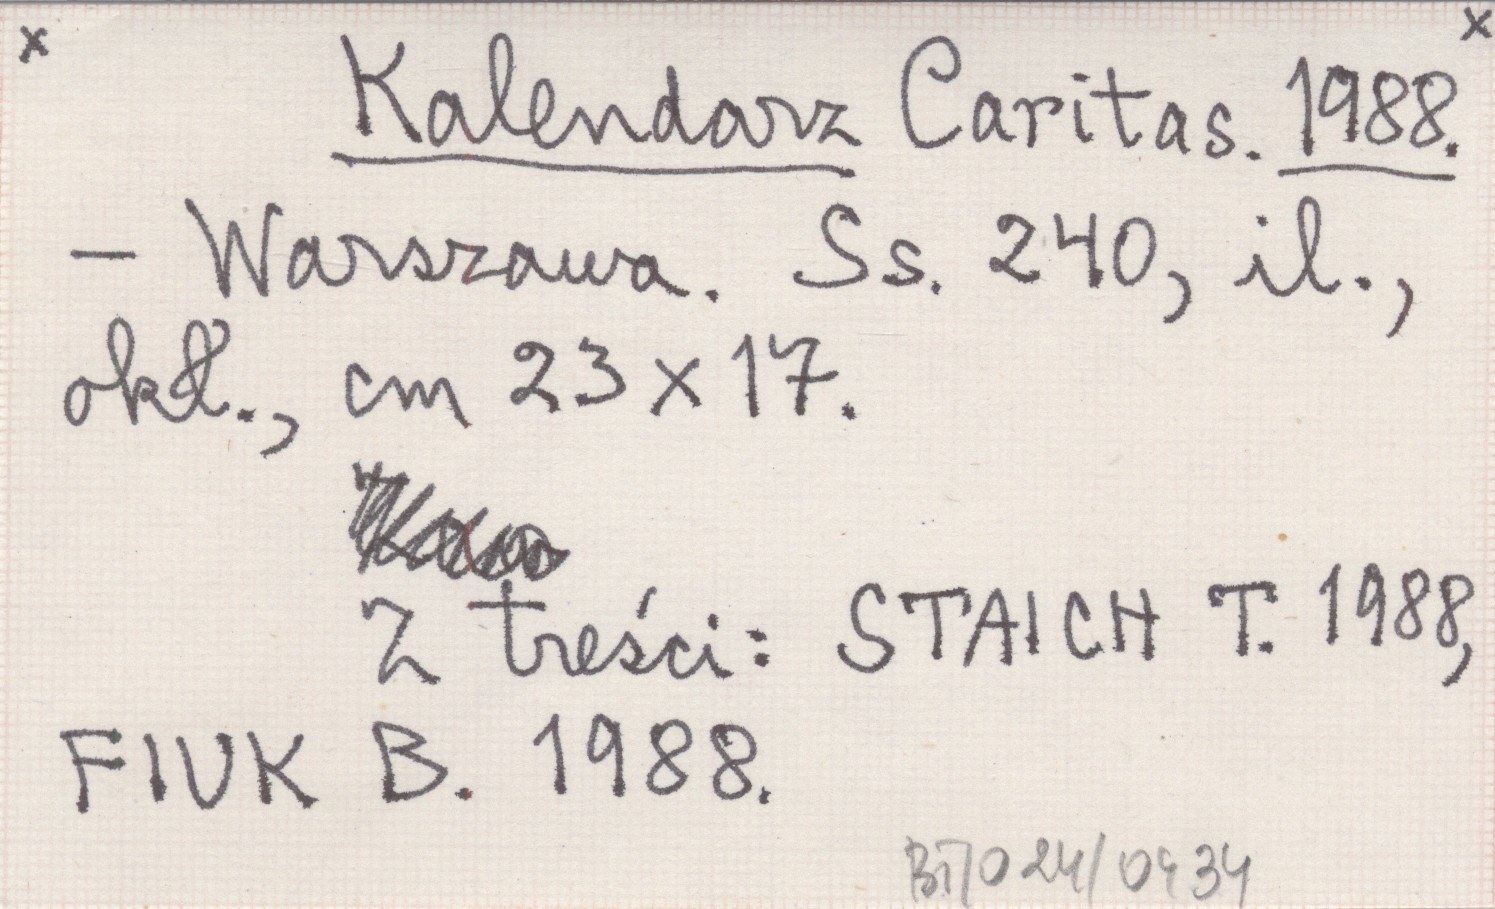 x x
Kalendarz Caritas. 1988.
– Warszawa. Ss. 240, il.,
okł., cm 23 x 17.
Z treści: STAICH T. 1988,
FIUK B. 1988.
024/0434